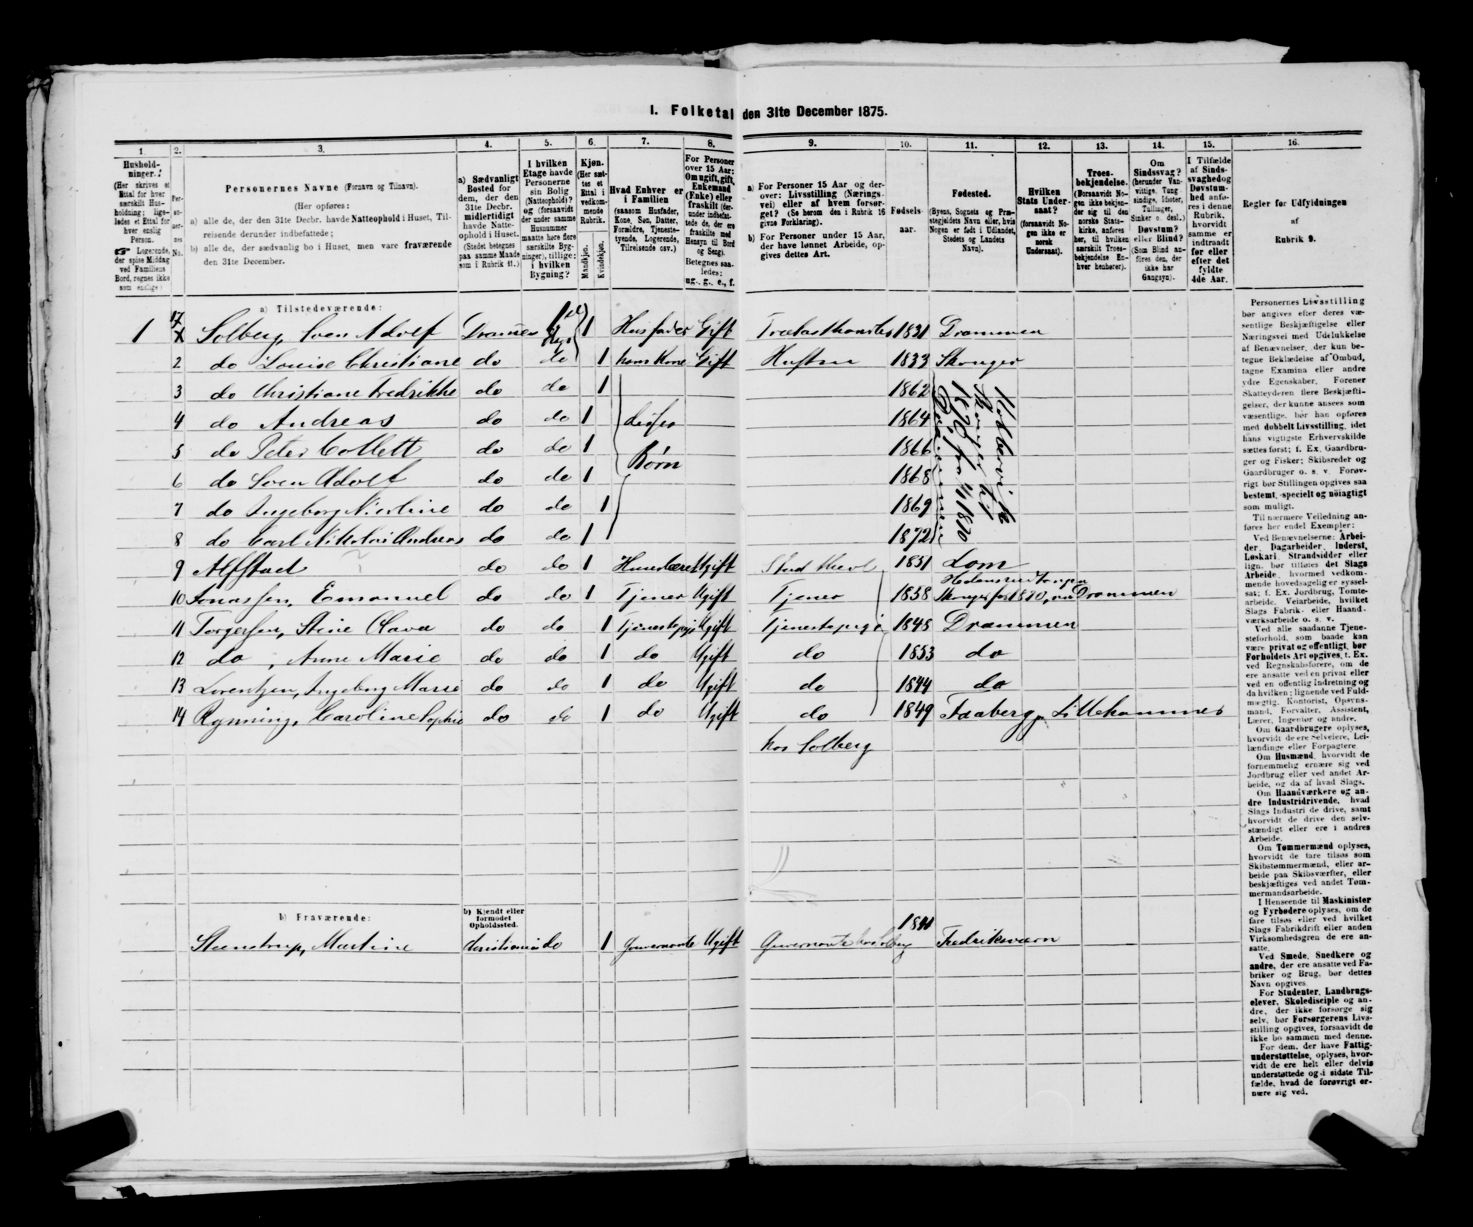 I. Folketal den 31te December 1875.
1. 2. 3. 4. 5. 6. 7. 8. 9. 10. 11. 12. 13. 14. 15. 16.
Husholdninger. (Her skrives et Ettal for hver særskilt Husholdning; ligeledes et Ettal for hver enslig Person. Logerende, der spise Middag ved Familiens Bord, regnes ikke som enslige.)
Personernes No.
Personernes Navne (Fornavn og Tilnavn).
(Her opføres:
a) alle de, der den 31te Decbr. havde Natteophold i Huset, Tilreisende derunder indbefattede;
b) alle de, der sædvanlig bo i Huset, men vare fraværende den 31te December.
a) Sædvanligt Bosted for dem, der den 31te Decbr. midlertidigt havde Natteophold i Huset. (Stedet betegnes paa samme Maade som i Rubrik 11.)
I hvilken Etage havde Personerne sin Bolig (Natteophold)? og (forsaavidt der under samme Husnummer maatte høre flere særskilte Bygninger), tillige: i hvilken Bygning?
Kjøn. (Her sættes et Ettal i vedkommende Rubrik.
Mandkjøn. Kvindekjøn.
Hvad Enhver er i Familien (saasom Husfader, Kone, Søn, Datter, Forældre, Tjenestetyende, Logerende, Tilreisende osv.)
For Personer over 15 Aar: Om ugift, gift, Enkemand (Enke) eller fraskilt (derunder indbefattede de, der ere fraskilte med Hensyn til Bord og Seng). Betegnes saaledes: ug., g., e., f.
a) For Personer 15 Aar og derover: Livsstilling (Næringsvei) eller af hvem forsørget? (Se herom den i Rubrik 16 givne Forklaring).
b) For Personer under 15 Aar, der have lønnet Arbeide, opgives dettes Art.
Fødselsaar.
Fødested. (Byens, Sognets og Præstegjeldets Navn eller, hvis Nogen er født i Udlandet, Stedets og Landets Navn).
Hvilken Stats Undersaat? (forsaavidt Nogen ikke er norsk Undersaat).
Troesbekjendelse. (Forsaavidt Nogen ikke bekjender sig til den norske Statskirke, anføres her, til hvilken særskilt Troesbekjendelse Enhver henhører).
Om Sindssvag? (herunder Vanvittige, Tungsindige, Idioter, Tullinger, Sinker o. desl.) Døvstum? eller Blind? (Som Blind anføres den, der ikke har Gangsyn).
I Tilfælde af Sindssvaghed og Døvstumhed anføres i denne Rubrik, hvorvidt samme er indtraadt før eller efter det fyldte 4de Aar.
Regler for Udfyldningen af Rubrik 9.
a) Tilstedeværende:
1 Solberg, Sven Adolf Drammen 1 Husfader Gift 1831 Drammen
2 do Louise Christiane do do 1 hans Kone Gift Hustru 1833 Skouger
3 do Christiane Fredrikke do do 1 1862
4 do Andreas do do 1 deres 1864
5 do Peter Collett do do 1 1866
Børn
6 do Sven Adolf do do 1 1868
7 do Ingeborg Nicoline do do 1 1869
8 do Carl Nikolai Andreas do do 1 1872
9 Alfstad do do 1 Huuslærer Ugift 1851 Lom
10 Jonassen, Emanuel do do 1 Tjener Ugift Tjener 1858 Drammen
11 Torgersen, Stine Olava do do 1 Tjenestepige Ugift Tjenestepige 1848 Drammen
12 do, Anne Marie do do 1 do Ugift do 1853 do
13 Lorentzen, Ingeborg Marie do do 1 do Ugift do 1844 do
14 Rynning, Caroline Sophie do do 1 do Ugift do 1849 Faaberg, Lillehammer
hos Solberg
b) Fraværende:
b) Kjendt eller formodet Opholdssted.
Steenstrup, Martine Christiania do 1 Gouvernante Ugift Fredriksværn
Personernes Livsstilling bør angives efter deres væsentlige Beskjæftigelse eller Næringsvei med Udelukkelse af Benævnelser, der kun betegne Beklædelse af Ombud, tagne Examina eller andre ydre Egenskaber. Forener Skatteyderen flere Beskjæftigelser, der kunne ansees som væsentlige, bør han opføres med dobbelt Livsstilling, idet hans vigtigste Erhvervskilde sættes først; f. Ex. Gaardbruger og Fisker; Skibsreder og Gaardbruger o. s. v. Forøvrigt bør Stillingen opgives saa bestemt, specielt og nøiagtigt som muligt.
Til nærmere Veiledning anføres her endel Exempler:
Ved Benævnelserne: Arbeider, Dagarbeider, Inderst, Løskari, Strandsidder eller lign. bør tilføies det Slags Arbeide, hvormed vedkommende hovedsagelig er sysselsat; f. Ex. Jordbrug, Tomtearbeide, Veiarbeide, hvilket Slags Fabrik- eller Haandværksarbeide o. s. v.
Ved alle saadanne Tjenesteforhold, som baade kan være privat og offentligt, bør Forholdets Art opgives, t. Ex. ved Regnskabsførere, om de ere ansatte ved en privat eller ved en offentlig Indretning og da hvilken; lignende ved Fuldmægtig, Kontorist, Opsynsmand, Forvalter, Assistent, Lærer, Ingeniør og andre.
Om Gaardbrugere oplyses, hvorvidt de ere Selveiere, Leilændinge eller Forpagtere.
Om Husmænd, hvorvidt de fornemmelig ernære sig ved Jordbrug eller ved andet Arbeide, og da af hvad Slags.
Om Haandværkere og andre Industridrivende, hvad Slags Industri de drive, samt hvorvidt de drive den selvstændigt eller ere i andres Arbeide.
Om Tømmermænd oplyses, hvorvidt de fare tilsøs som Skibstømmermænd, eller arbeide paa Skibsværfter, eller beskjæftiges ved andet Tømmermandsarbeide.
I Henseende til Maskinister og Fyrbødere oplyses, om de fare tilsøs eller ved hvilket Slags Fabrikdrift eller anden Virksomhedsgren de ere ansatte.
Ved Smede, Snedkere og andre, der ere ansatte ved Fabriker og Brug, bør dettes Navn opgives.
For Studenter, Landbrugselever, Skoledisciple og andre, der ikke forsørge sig selv, bør Forsørgerens Livsstilling opgives, forsaavidt de ikke bo sammen med denne.
For dem, der have Fattigunderstøttelse, oplyses, hvorvidt de ere helt eller delvis understøttede og i sidste Tilfælde, hvad de forøvrigt ernære sig ved.